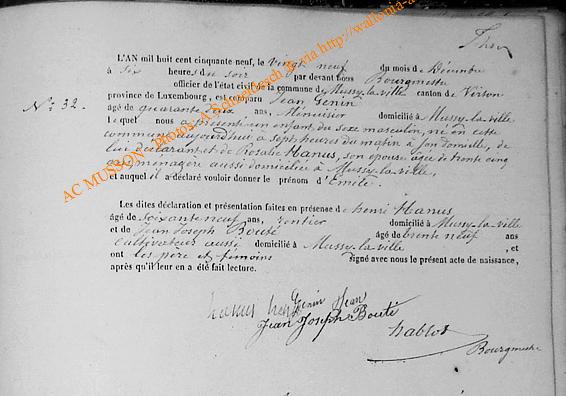 L'AN mil huit cent cinquante neuf, le vingt neuf du mois de Décembre
à six heures du soir par devant nous Bourgmestre
officier de l'état civil de la commune de Mussy-la-ville canton de Virton
N.º 32.
province de Luxembourg, est comparu Jean Genin
âgé de quarante deux ans, Menuisier domicilié à Mussy-la-ville
lequel nous a présenté un enfant du sexe masculin, né en cette
commune aujourd'hui à sept heures du matin à son domicile, de
lui déclarant et de Rosalie Hanus, son épouse âgée de trente cinq
ans, ménagère aussi domiciliée à Mussy-la-ville,
et auquel il a déclaré vouloir donner le prénom d'Emile.
Les dites déclaration et présentation faites en présence de henri Hanus
âgé de soixante neuf ans, rentier domicilié à Mussy-la-ville
et de Jean Joseph Bouté âgé de trente neuf ans
cultivateur aussi domicilié à Mussy-la-ville, et
ont les père et témoins signé avec nous le présent acte de naissance,
après qu'il leur en a été fait lecture.
hanus henri Genin Jean
Jean Joseph Bouté
hablot
Bourgmestre
AC MUSSON - Photos: A. Schoerbesch &. via http://wallonia-a